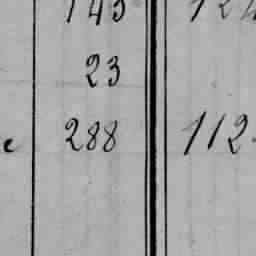 143 124
23
e 288 112